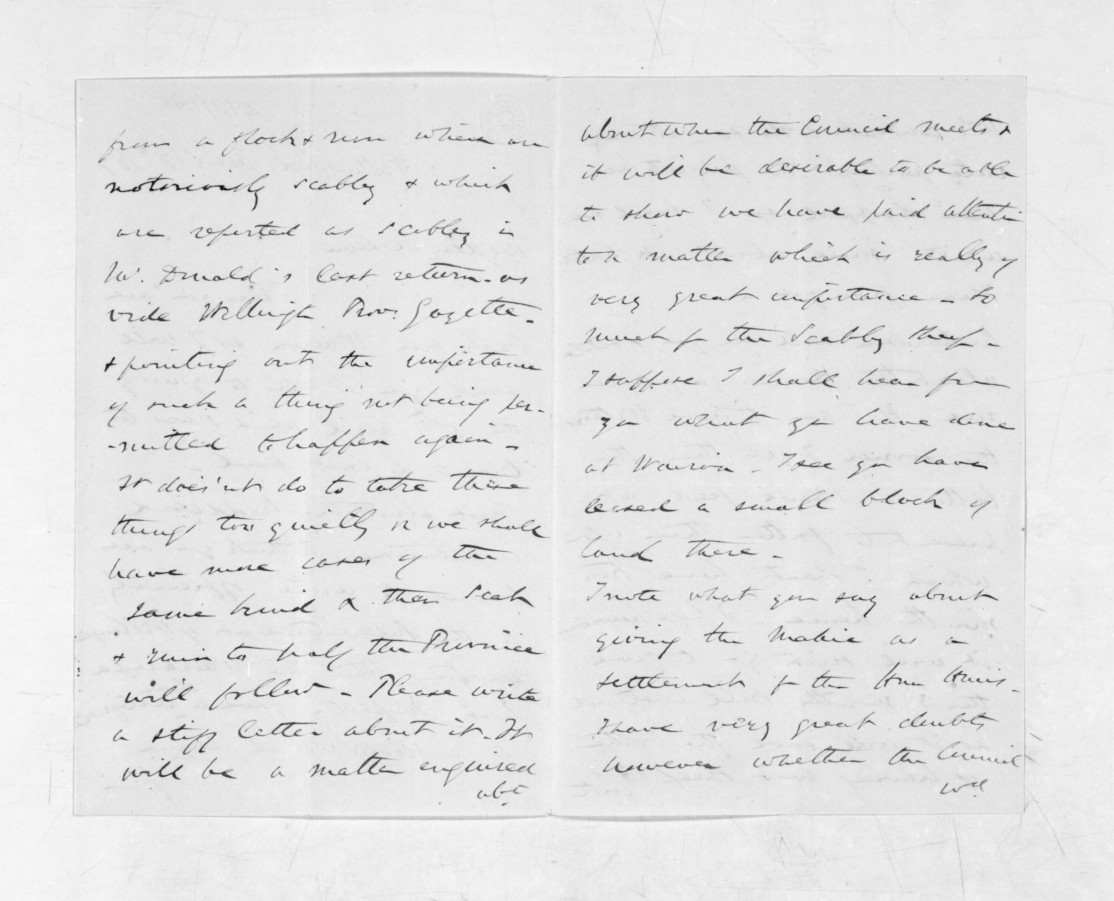 from a flock & run which are
notoriously scabby & which
are reported as scabby in
McDonald's last return - as
vide Wellingtn Prov. Gazette -
& pointing out the importance
of such a thing not being per-
-mitted to happen again -
It does'nt do to take these
things too quietly or we shall
have more cases of the
same kind & then Scab
& ruin to half the Province
will follow - Please write
a stiff letter about it. It
will be a matter enquired
abt
about when the Council meets &
it will be desirable to be able
to show we have paid attentin
to a matter which is really of
very great importance - so
much for the Scabby sheep -
I suppose I shall hear from
you what you have done
at Wairoa - I see you have
leased a small block of
land there -
I note what you say about
giving the Mahia as a
settlement for the Hau Haus -
I have very great doubts
however whether the Council
wd